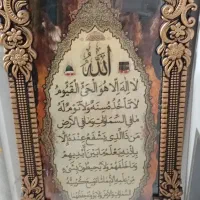 الله
لا إله إلا هو الحي القيوم
لا تأخذه سنة ولا نوم له
ما في السموات وما في الأرض
من ذا الذي يشفع عنده إلا
بإذنه يعلم ما بين أيديهم
وما خلفهم ولا يحيطون بشيء